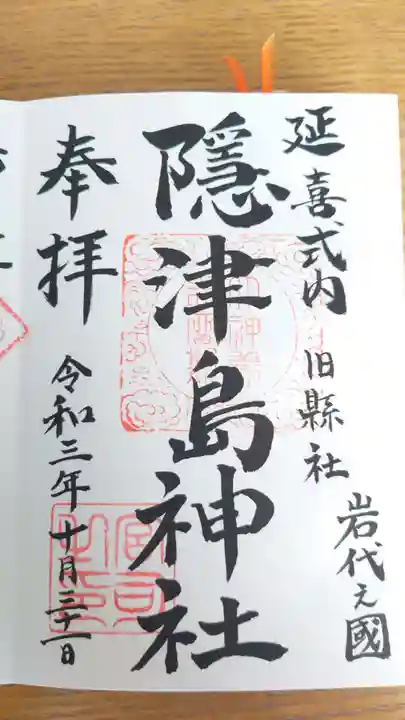 延喜式内
旧縣社
岩代之國
隠津島神社
奉拝
令和三年十月三十一日